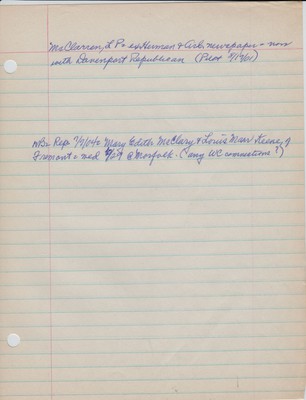 McClarren, L P - ex Herman & Arl. newspaper - now
with Davenport Republican (Pilot
Rep 7/9/04 - Mary Edith McClary & Louis Marr Keene of
Fremont - wed @ Norfolk. (any WC connections?)